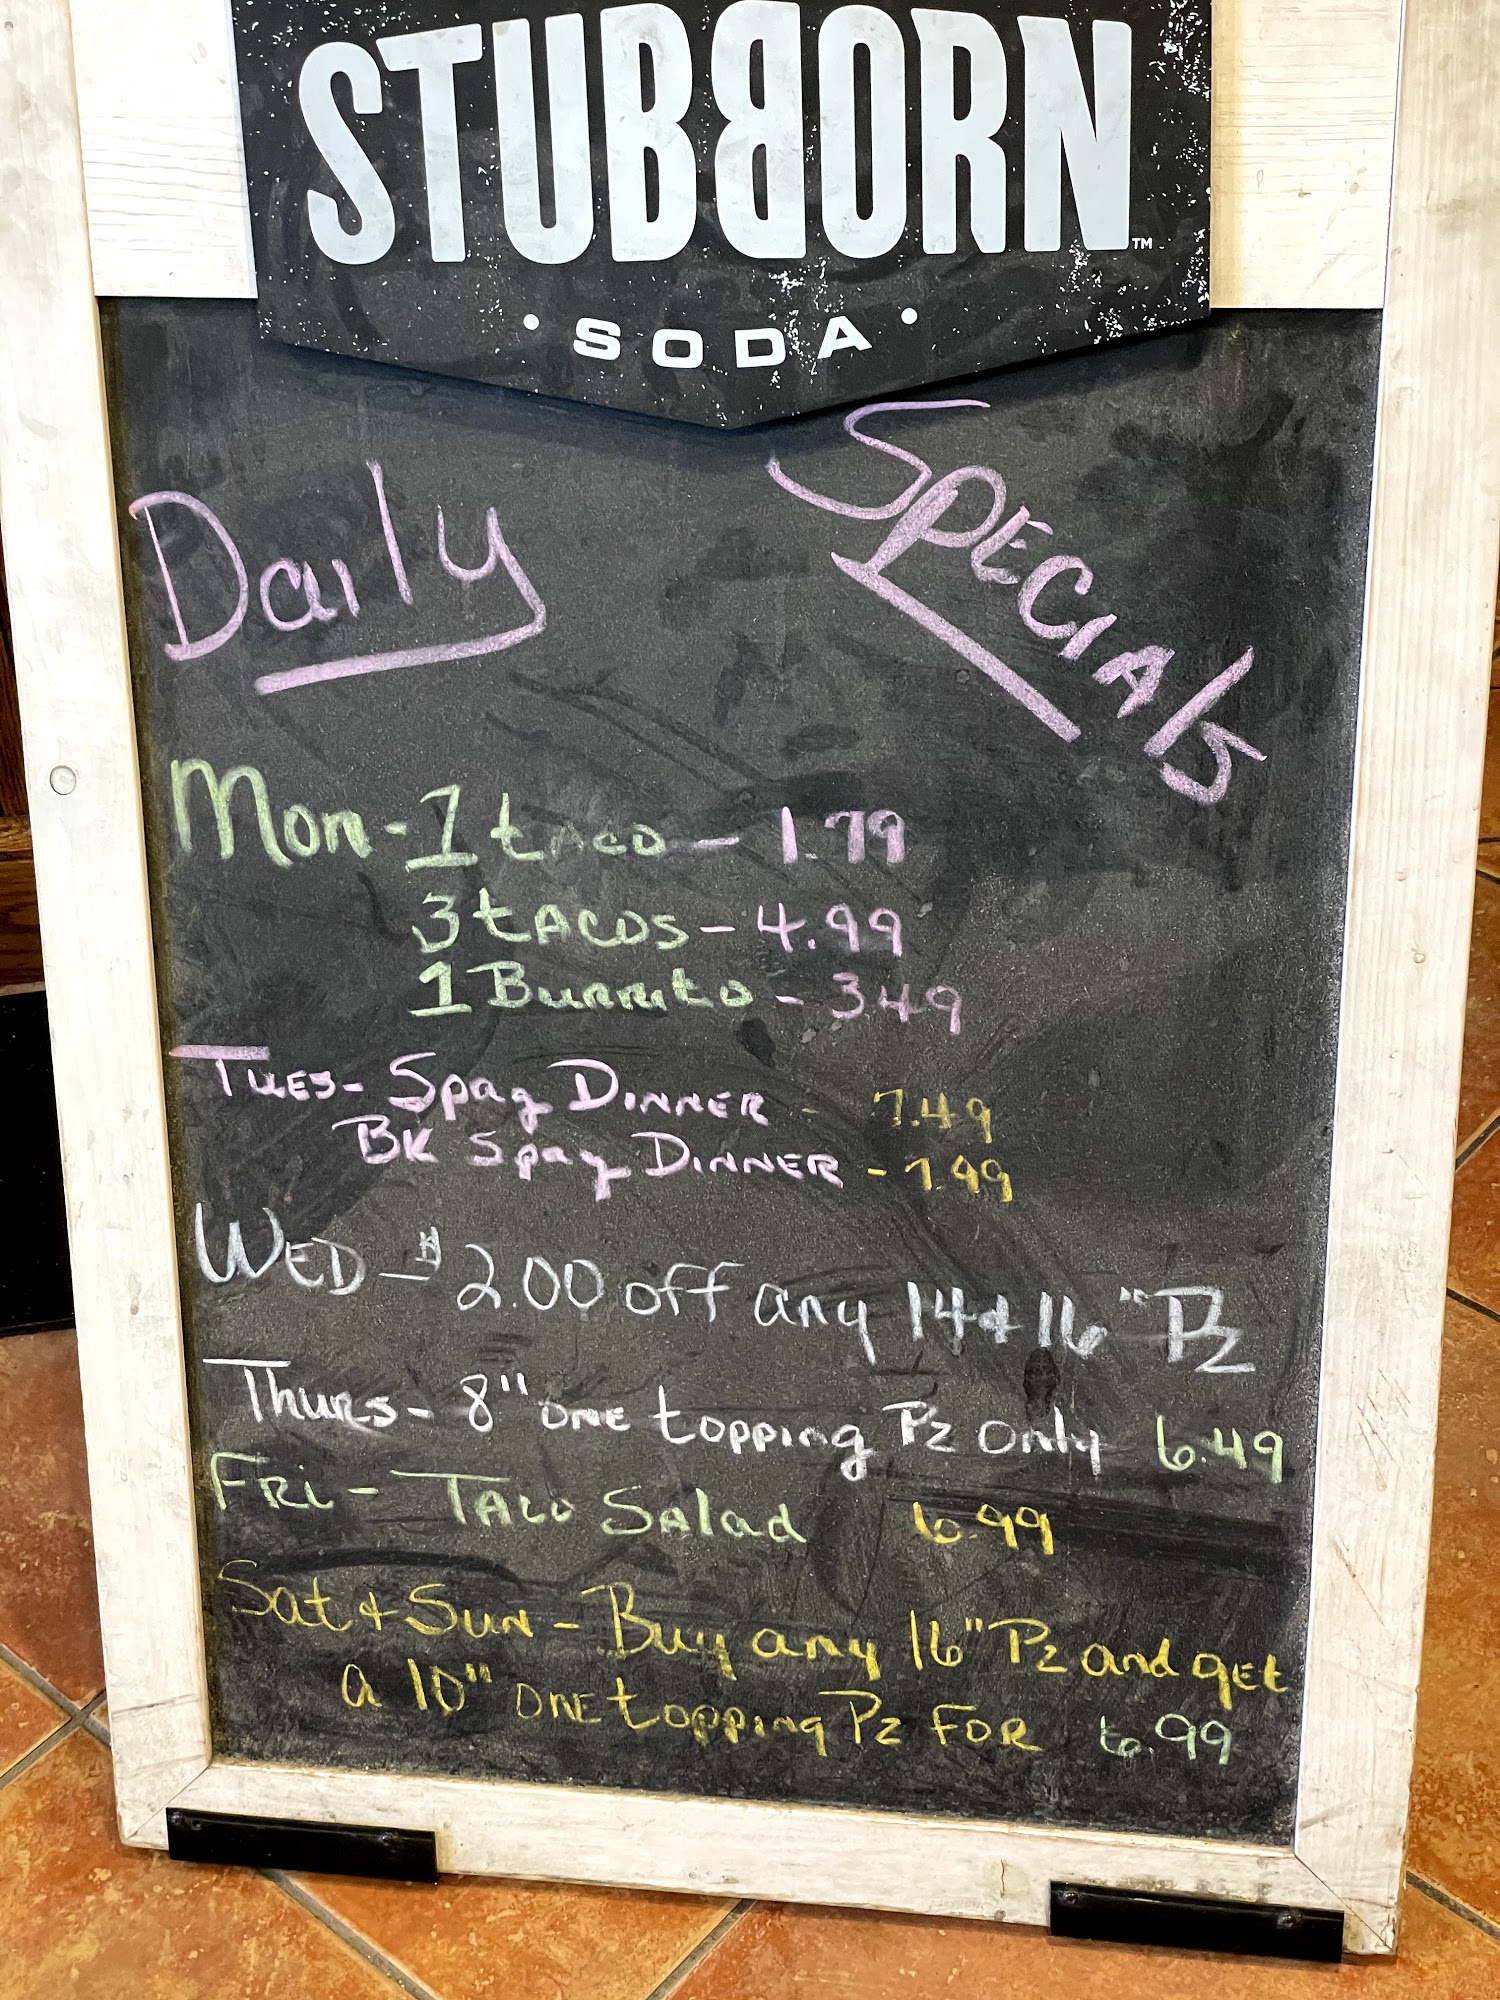 STUBBORN™
• SODA •
Daily Specials
Mon - 1 tACO - 1.79
3 tACOS - 4.99
1 Burrito - 3.49
TUES - Spag DINNER - 7.49
BK Spag DINNER - 7.99
WED - $2.00 off any 14 & 16" Pz
Thurs - 8" ONE topping Pz Only 6.49
FRi - TACO SAlad 6.99
Sat & Sun - Buy any 16" Pz and get
a 10" ONE topping Pz FOR 6.99